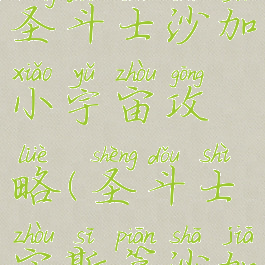 圣斗士沙加
xiǎo yǔ zhòu gōng
小宇宙攻
lüè shèng dǒu shì
略(圣斗士
zhòu sī piān shā jiā
宙斯篇沙加